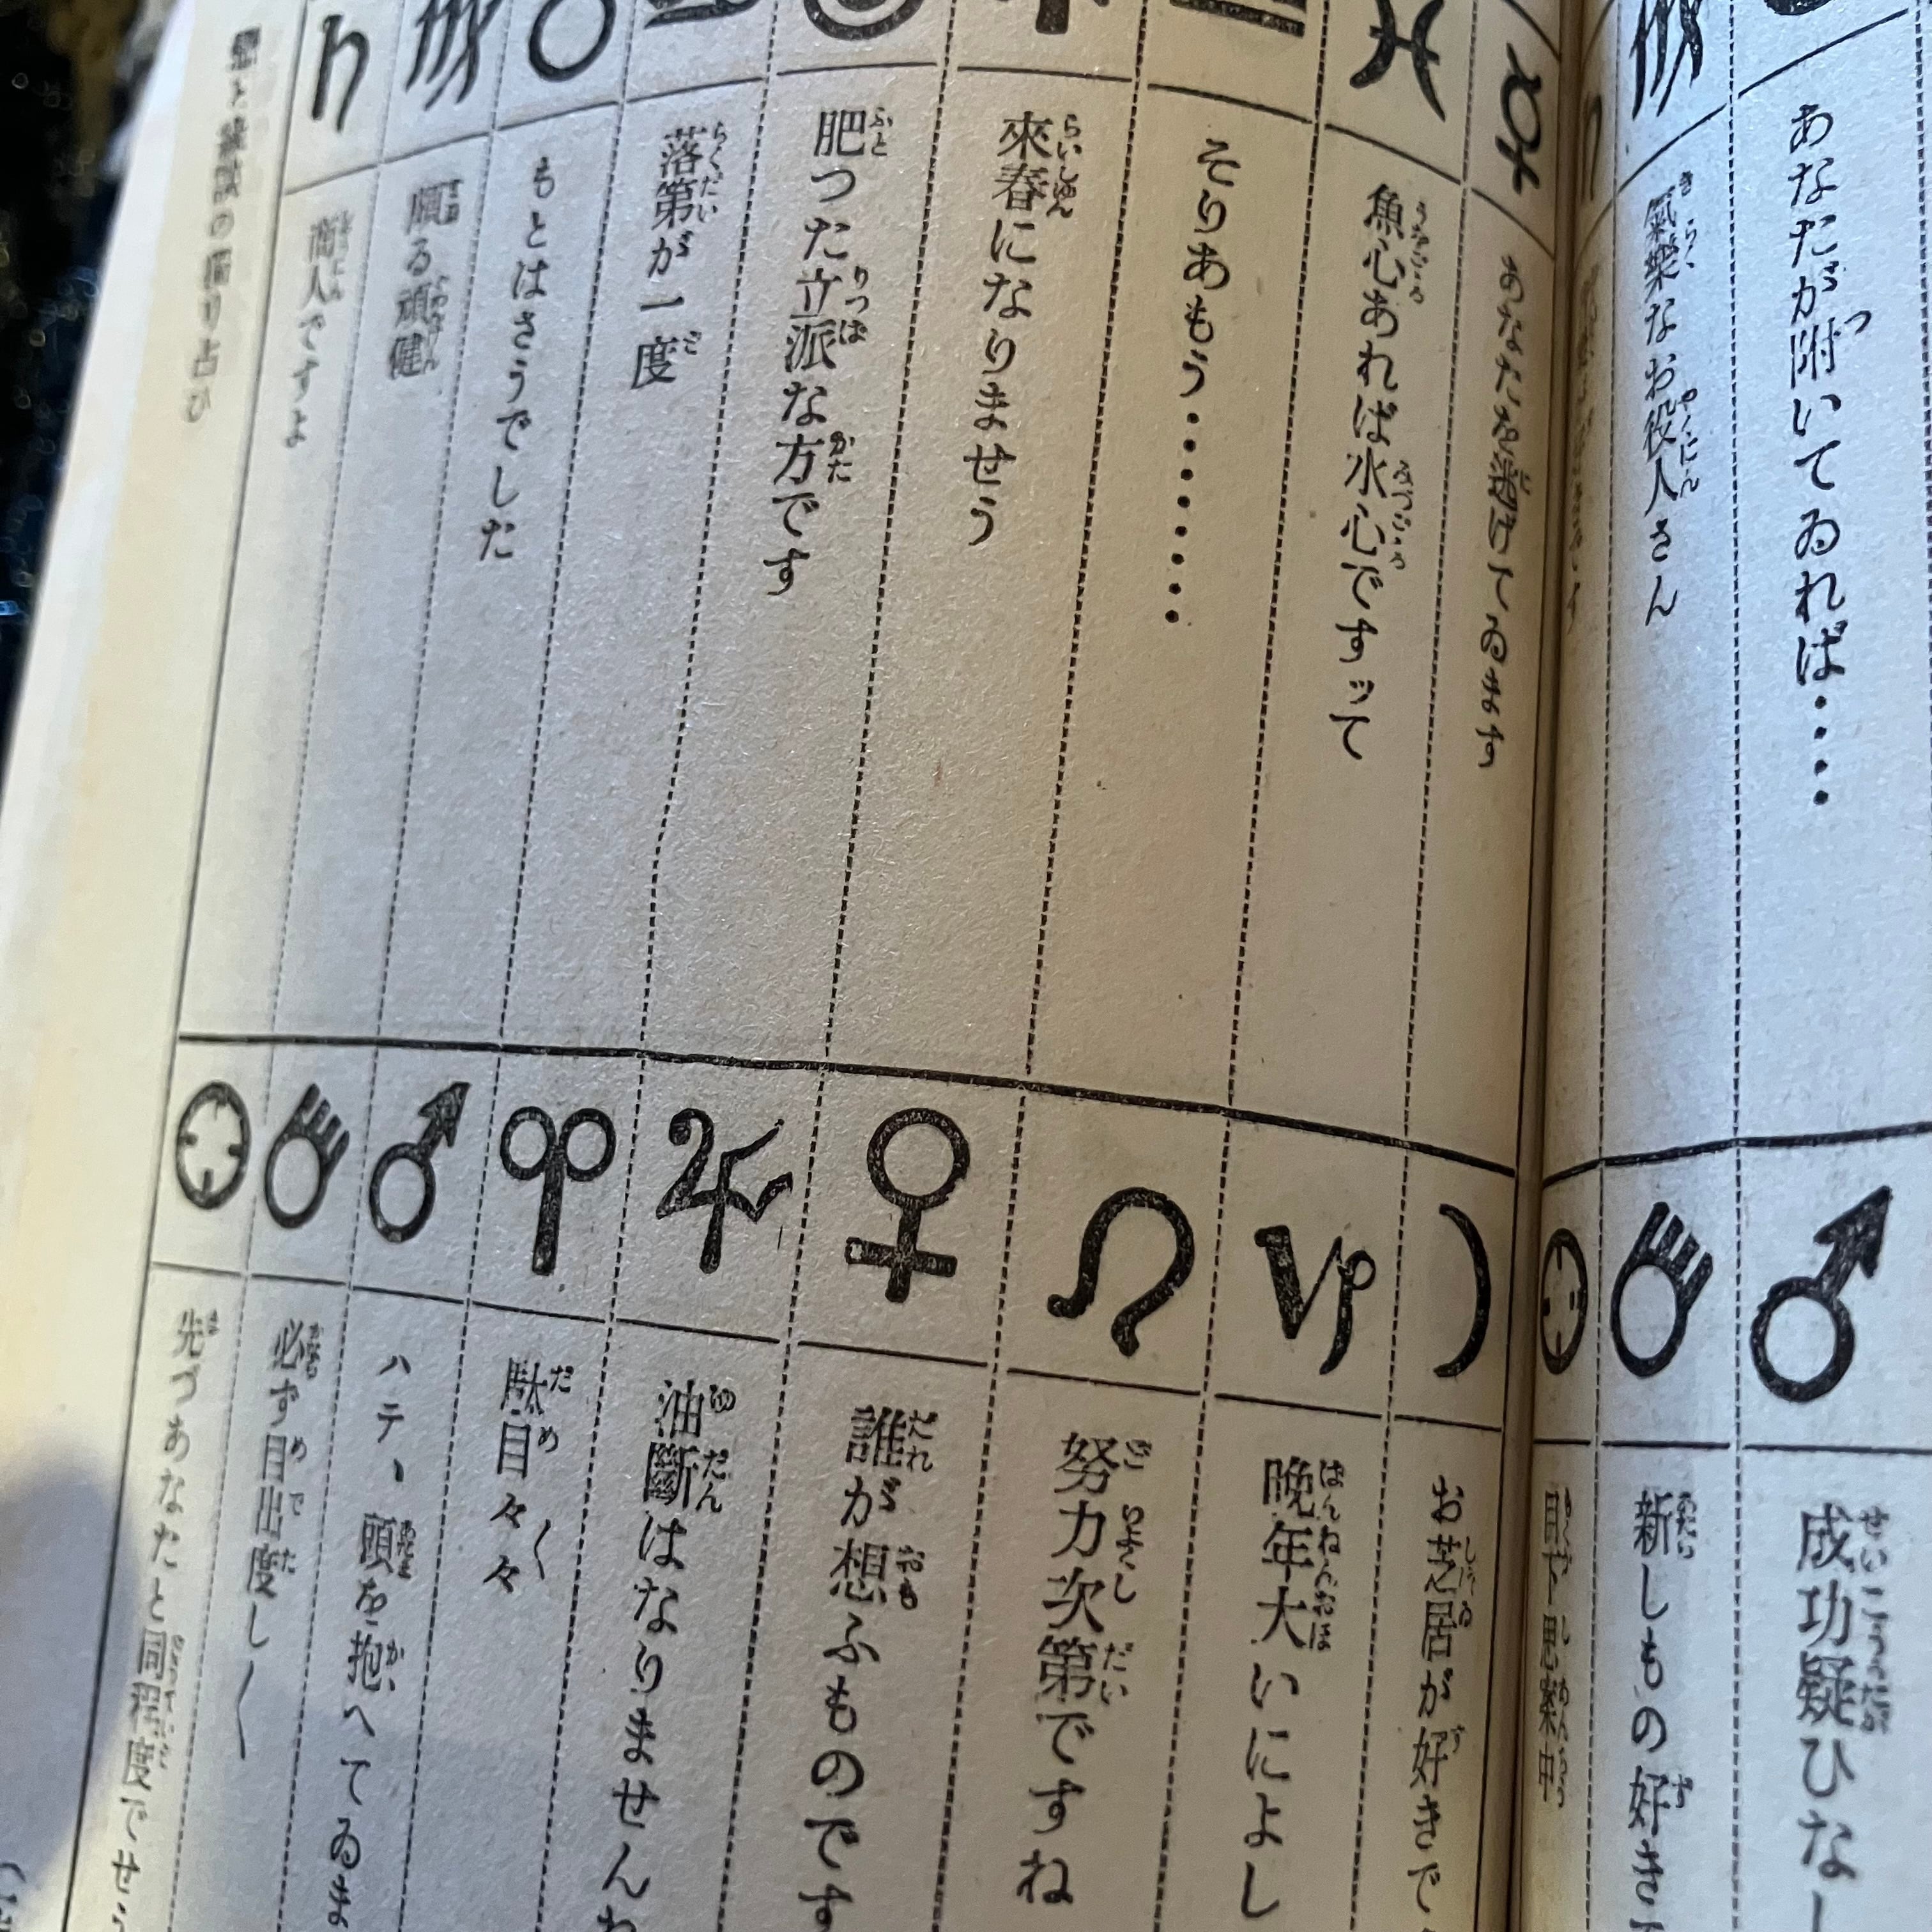 あなたが附いてゐれば‥‥
氣樂なお役人さん
魚心あれば水心ですつて
そりあもう‥‥‥‥
來春になりませう
肥つた立派な方です
落第が一度
もとはさうでした
頗る頑健
商人ですよ
成功疑ひな
新しもの好き
お芝居が好きで
晩年大いによし
努力次第ですね
誰が想ふものです
油斷はなりません
駄目々々
ハテ、頭を抱へてゐま
必ず目出度し〱
先づあなたと同程度でせう
戀と緣談の獨り占ひ